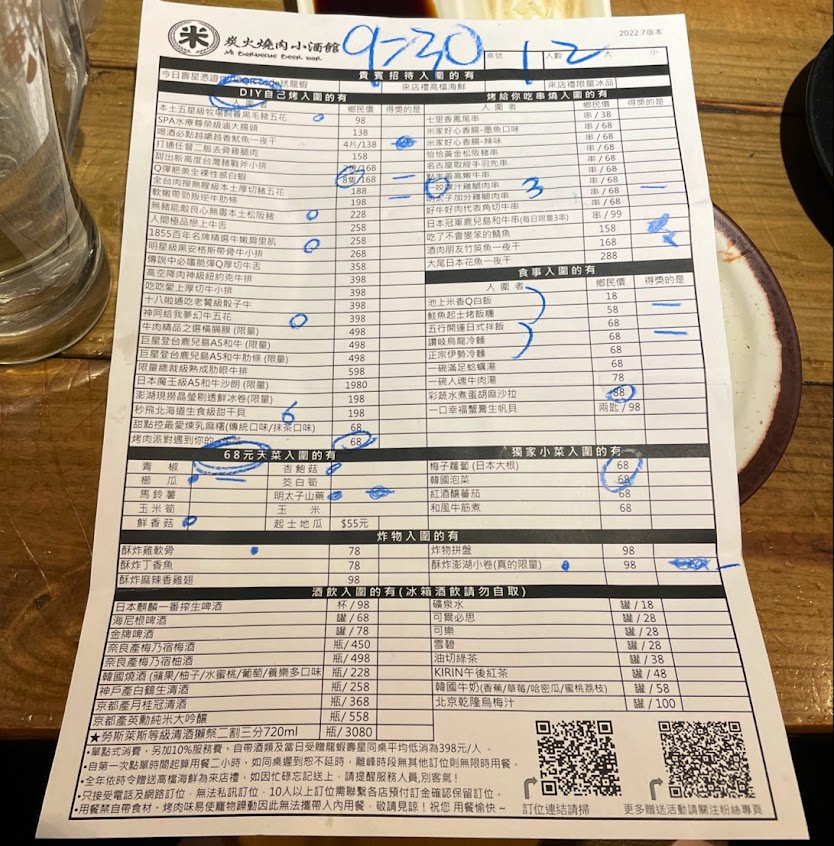 2022.7版本
米 炭火燒肉小酒館
Mi Barbecue Beer Bar
9->30
桌號 人數 12 大 小
貴賓招待入圍的有
今日壽星憑證 送龍蝦 來店禮高檔海鮮 來店禮限量冰品
DIY自己烤入圍的有
入圍者 鄉民價 得獎的是
本土五星級牧場飼養黑毛豬五花 98
SPA水療尊榮級滷大腸頭 138
喝酒必點越嚼越香魷魚一夜干 4片/138
打通任督二脈去骨雞腿肉 158
甜出新高度台灣豬戰斧小排 /168
Q彈肥美全裸性感白蝦 8隻/168
全台肉搜無腥級本土厚切豬五花 188
軟嫩帶勁叛逆牛肋條 198
無豬能敵良心無毒本土松阪豬 228
人間極品戀上牛舌 258
1855百年名牌精選牛嫩肩里肌 258
明星級黑安格斯帶骨牛小排 268
傳說中必嚐脆彈Q厚切牛舌 358
高空隊肉神級紐約克牛排 398
吃吃愛上厚切牛小排 398
十八啦通吃老饕級骰子牛 398
神阿給我夢幻牛五花 398
牛肉精品之選橫膈膜 (限量) 498
巨星登台鹿兒島A5和牛 (限量) 498
巨星登台鹿兒島A5和牛肋條 (限量) 498
限量總裁級熟成肋眼牛排 598
日本魔王級A5和牛沙朗 (限量) 1980
澎湖現撈晶瑩剔透鮮冰卷(限量) 198
秒飛北海道生食級甜干貝 6 198
甜點控最愛煉乳麻糬(傳統口味/抹茶口味) 68
烤肉派對遇到你的 68
烤給你吃串燒入圍的有
入圍者 鄉民價 得獎的是
七里香鳳尾串 串/38
米家好心香腸-墨魚口味 串/68
米家好心香腸-辣味 串/68
恰恰黃金松阪豬串 串/68
名古屋取經手羽先串 串/68
嫩牛串 串/68
爆汁雞腿肉串 3 串/68
明太子加分雞腿肉串 串/68
好牛好肉代表角切牛串 串/68
日本冠軍鹿兒島和牛串(每日限量3串) 串/99
吃了不會變笨的鯖魚 158
酒肉朋友竹筴魚一夜干 168
大尾日本花魚一夜干 288
食事入圍的有
入圍者 鄉民價 得獎的是
池上米香Q白飯 18
鮭魚起士烤飯糰 58
五行開運日式拌飯 68
讚岐烏龍冷麵 68
正宗伊勢冷麵 68
一碗滿足蛤蠣湯 68
一碗人魂牛肉湯 78
彩蔬水煮蛋胡麻沙拉 88
一口幸福蟹膏生帆貝 兩匙/98
68元天菜入圍的有
青椒 杏鮑菇
櫛瓜 茭白筍
馬鈴薯 明太子山藥
玉米筍 玉米
鮮香菇 起士地瓜 $55元
獨家小菜入圍的有
梅子蘿蔔 (日本大根) 68
韓國泡菜 68
紅酒釀蕃茄 68
和風牛筋煮 68
炸物入圍的有
酥炸雞軟骨 78 炸物拼盤 98
酥炸丁香魚 78 酥炸澎湖小卷(真的限量) 98
酥炸麻辣香雞翅 98
酒飲入圍的有(冰箱酒飲請勿自取)
日本麒麟一番搾生啤酒 杯/98 礦泉水 罐/18
海尼根啤酒 罐/68 可爾必思 罐/28
金牌啤酒 罐/78 可樂 罐/28
奈良產梅乃宿梅酒 瓶/450 雪碧 罐/28
奈良產梅乃宿柚酒 瓶/498 油切綠茶 罐/38
韓國燒酒 (蘋果/柚子/水蜜桃/葡萄/養樂多口味 瓶/228 KIRIN午後紅茶 罐/48
神戶產白鶴生清酒 瓶/258 韓國牛奶(香蕉/草莓/哈密瓜/蜜桃荔枝) 罐/58
京都產月桂冠清酒 瓶/368 北京乾隆烏梅汁 罐/100
京都產英勳純米大吟釀 瓶/558
★勞斯萊斯等級清酒獺祭二割三分720ml 瓶/3080
•單點式消費，另加10%服務費，自帶酒類及當日受贈龍蝦壽星同桌平均低消為398元/人。
•自第一次點單時間起算用餐二小時，如同桌遲到恕不延時，離峰時段無其他訂位則無限時用餐。
•全年依時令贈送高檔海鮮為來店禮，如因忙碌忘記送上，請提醒服務人員,別客氣！
•只接受電話及網路訂位，無法私訊訂位，10人以上訂位需聯繫各店預付訂金確認保留訂位。
•用餐禁自帶食材。烤肉味易使寵物躁動因此無法攜帶入內用餐，敬請見諒！祝您 用餐愉快～
訂位連結請掃
更多贈送活動請關注粉絲專頁